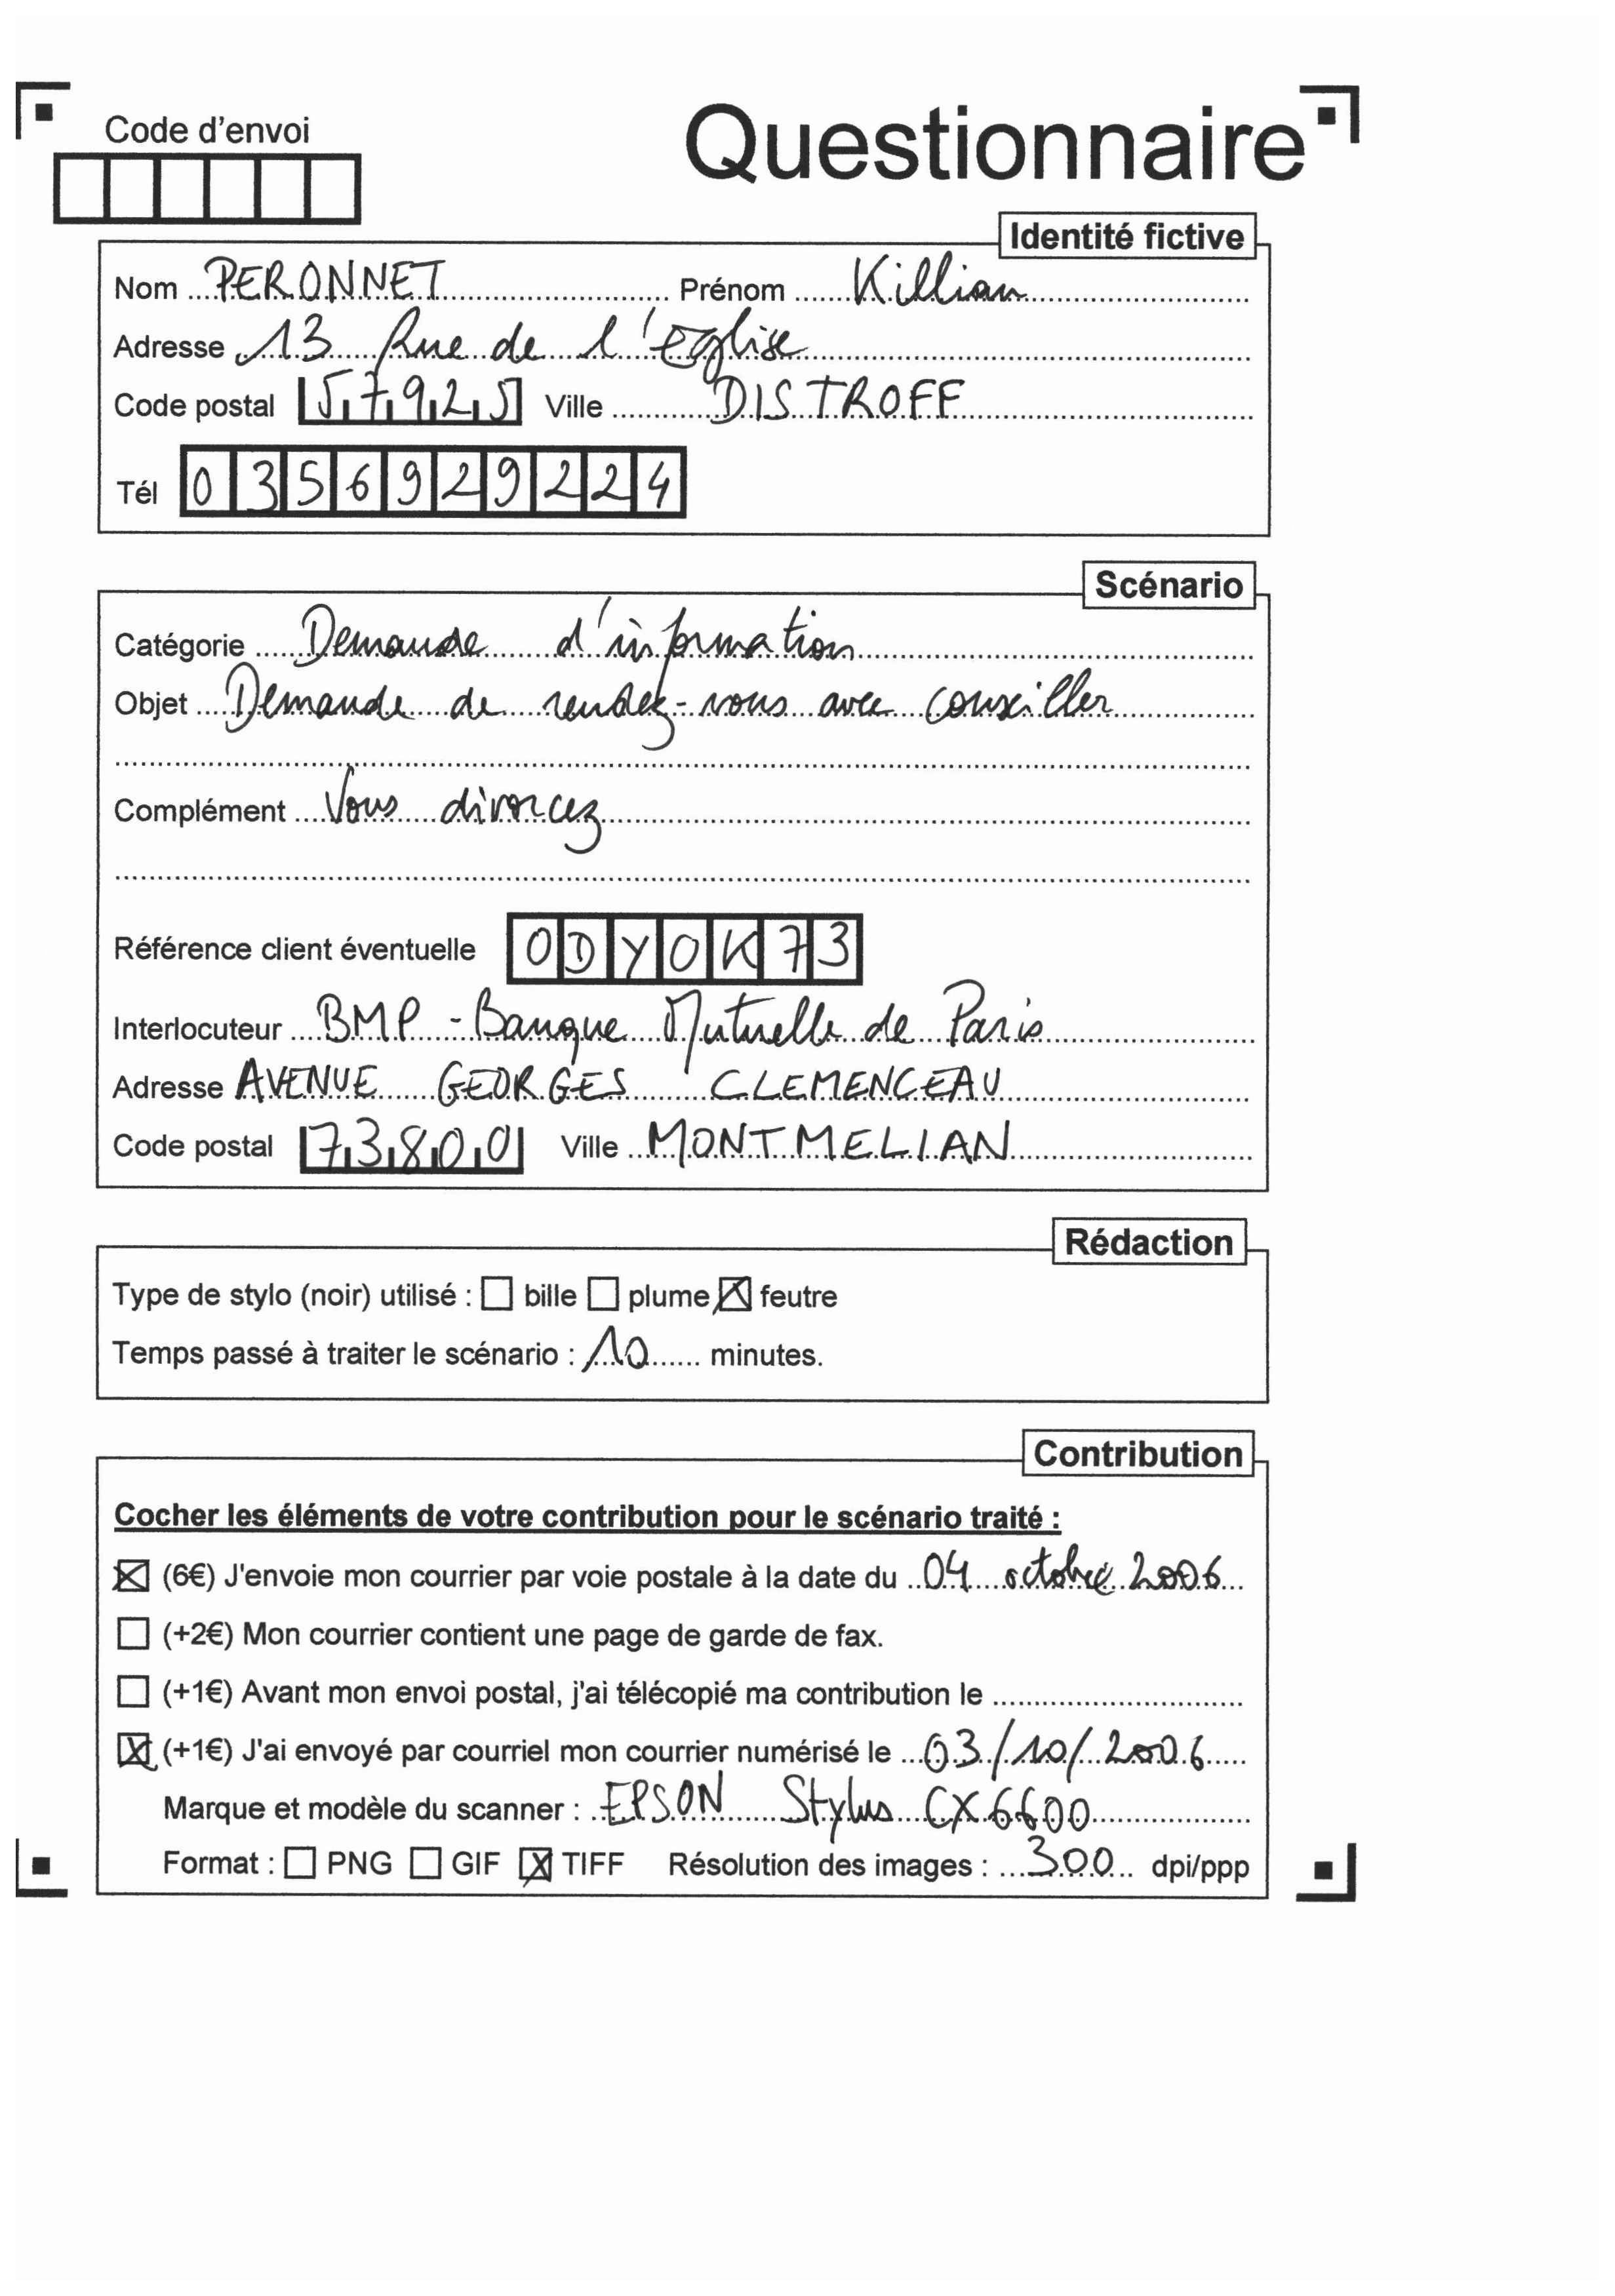 Code d'envoi
Questionnaire
Identité fictive
Nom PERONNET Prénom Killian
Adresse 13 Rue de l'Eglise
Code postal 57925 Ville DISTROFF
Tél 0356929224
Scénario
Catégorie Demande d'information
Objet Demande de rendez-vous avec conseiller
Complément Vous divorcez
Référence client éventuelle ODYOK73
Interlocuteur BMP - Banque Mutuelle de Paris
Adresse AVENUE GEORGES CLEMENCEAU
Code postal 73800 Ville MONTMELIAN
Rédaction
Type de stylo (noir) utilisé : ☐ bille ☐ plume ☒ feutre
Temps passé à traiter le scénario : 10 minutes.
Contribution
Cocher les éléments de votre contribution pour le scénario traité :
☒ (6€) J'envoie mon courrier par voie postale à la date du 04 octobre 2006
☐ (+2€) Mon courrier contient une page de garde de fax.
☐ (+1€) Avant mon envoi postal, j'ai télécopié ma contribution le
☒ (+1€) J'ai envoyé par courriel mon courrier numérisé le 03/10/2006
Marque et modèle du scanner : EPSON Stylus CX6600
Format : ☐ PNG ☐ GIF ☒ TIFF Résolution des images : 300 dpi/ppp